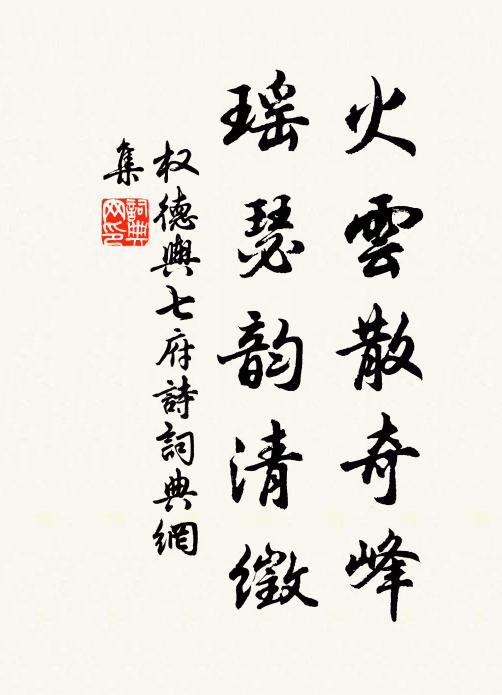 火雲散奇峰
瑶瑟韵清徵
权德輿七府詩詞典網
集
詞典
网印